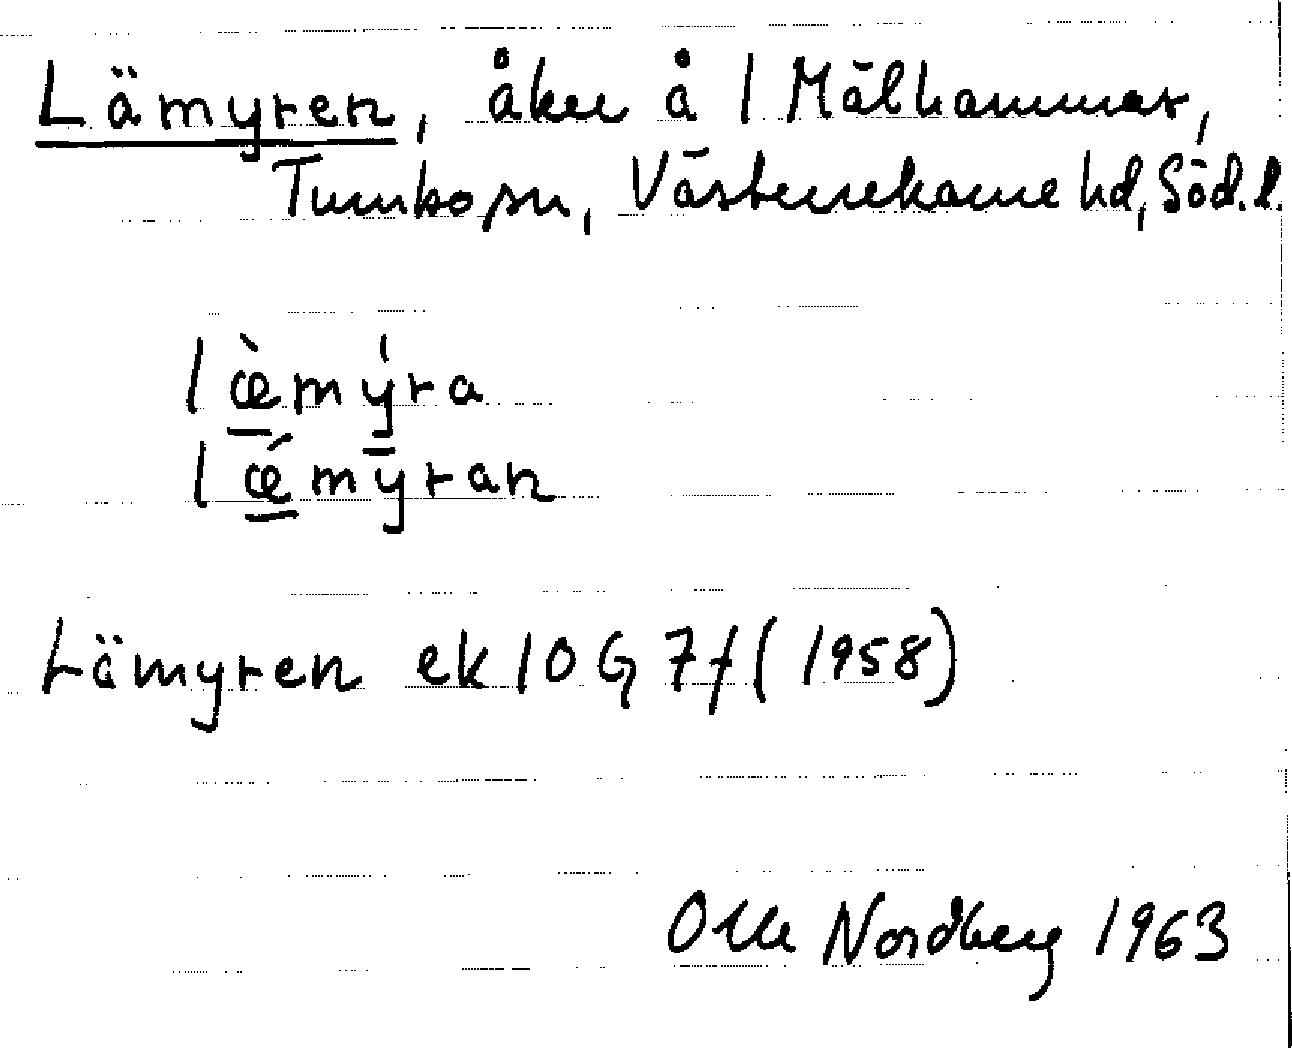 Lämyren, åker å 1 Mälhammar,
Tumbo sn, Västerrekarne hd, Söd. l.
læ̀mýra
lǽmȳran
Lämyren ek 10 G 7f (1958)
Olle Nordberg 1963